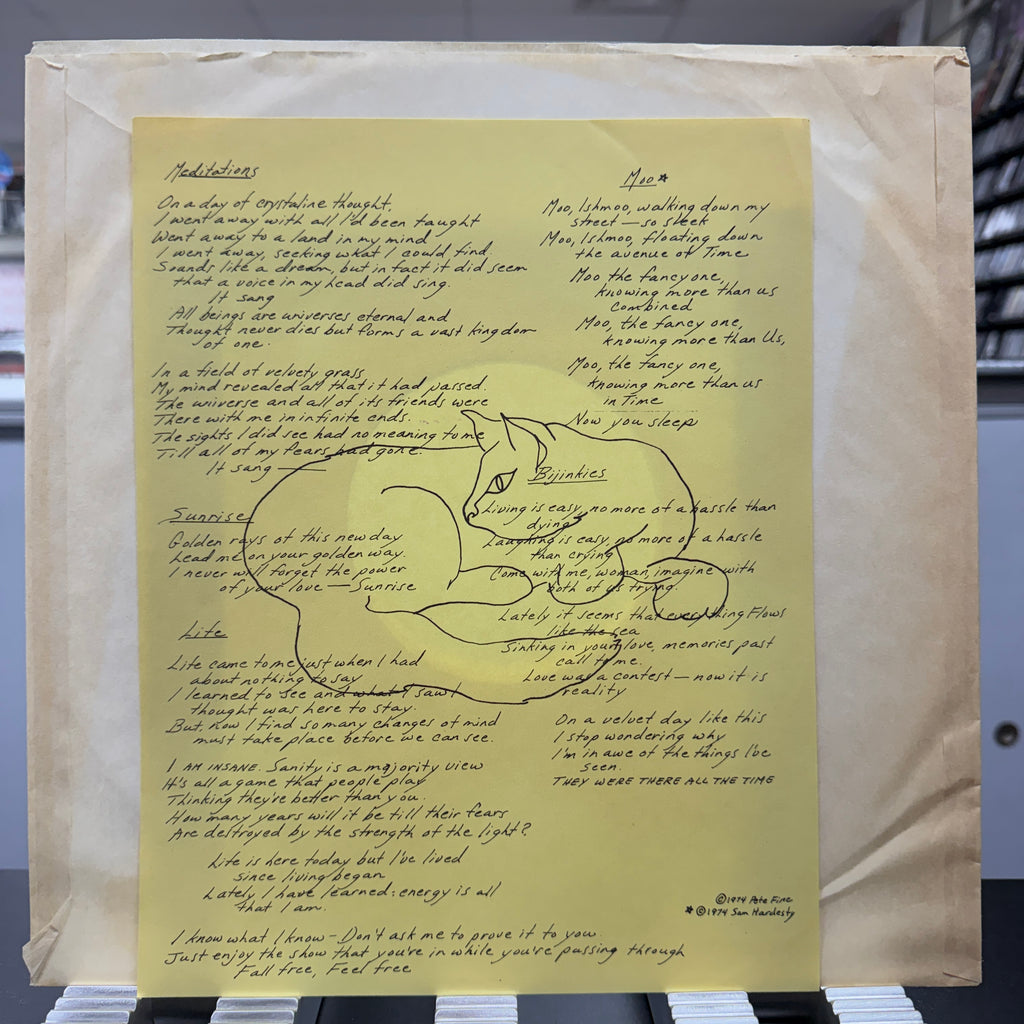 Meditations
On a day of crystaline thought,
I went away with all I'd been taught
Went away to a land in my mind
I went away, seeking what I could find.
Sounds like a dream, but in fact it did seem
that a voice in my head did sing.
It sang
All beings are universes eternal and
Thought never dies but forms a vast kingdom
of one.
In a field of velvety grass
My mind revealed all that it had passed.
The universe and all of its friends were
There with me in infinite ends.
The sights I did see had no meaning to me
Till all of my fears had gone.
It sang —
Sunrise
Golden rays of this new day
Lead me on your golden way.
I never will forget the power
of your love — Sunrise
Life
Life came to me just when I had
about nothing to say
I learned to see and what I saw I
thought was here to stay.
But, now I find so many changes of mind
must take place before we can see.
I AM INSANE. Sanity is a majority view
It's all a game that people play
Thinking they're better than you.
How many years will it be till their fears
Are destroyed by the strength of the light?
Life is here today but I've lived
since living began
Lately I have learned: energy is all
that I am.
I know what I know – Don't ask me to prove it to you.
Just enjoy the show that you're in while you're passing through
Fall free, Feel free
Moo★
Moo, Ishmoo, walking down my
street — so sleek
Moo, Ishmoo, floating down
the avenue of Time
Moo the fancy one,
knowing more than us
combined
Moo, the fancy one,
knowing more than Us,
Moo, the fancy one,
knowing more than us
in Time
Now you sleep
Bijinkies
Living is easy, no more of a hassle than
dying
Laughing is easy no more of a hassle
than crying
Come with me, woman, imagine with
both of us trying.
Lately it seems that everything Flows
like the sea
Sinking in your love, memories past
call to me.
Love was a contest — now it is
reality
On a velvet day like this
I stop wondering why
I'm in awe of the things I've
seen.
THEY WERE THERE ALL THE TIME
©1974 Pete Fine
★ ©1974 Sam Hardesty